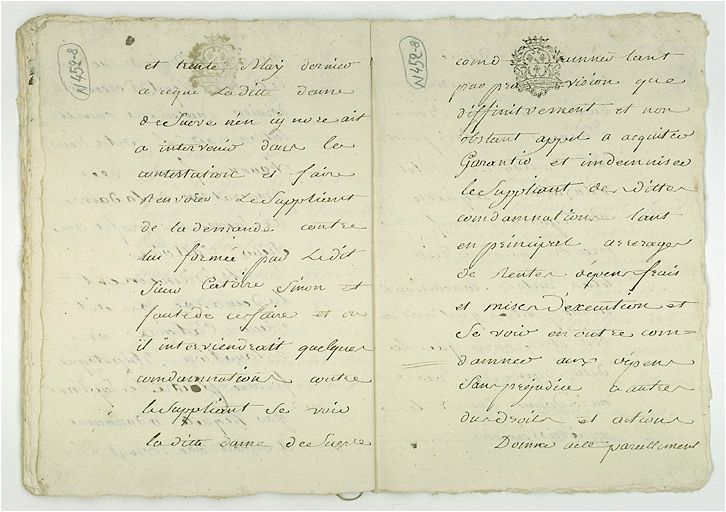 N 452-8
et trente May dernier
a ce que Ladite dame
de Suere nen
a intervenir dans la
contestation et faire
Renvoier Le Suppliant
de la demande contre
lui formée par Ledit
Sieur Sinon et
faute de ce faire et ou
il interviendrait quelques
condamnations contre
le Suppliant Se voir
laditte dame de Suere
N 452-8
cond amnée tant
par pro vision que
diffinitivement et non
obstant appel a acquiter
Garantir et indemniser
le Suppliant desdittes
condamnations tant
en principal arrerages
de Rentes dépens frais
et mises d'execution et
Se voir en outre con=
damner aux dépens
Sans préjudice a autres
dus droits et actions
Donner acte pareillement